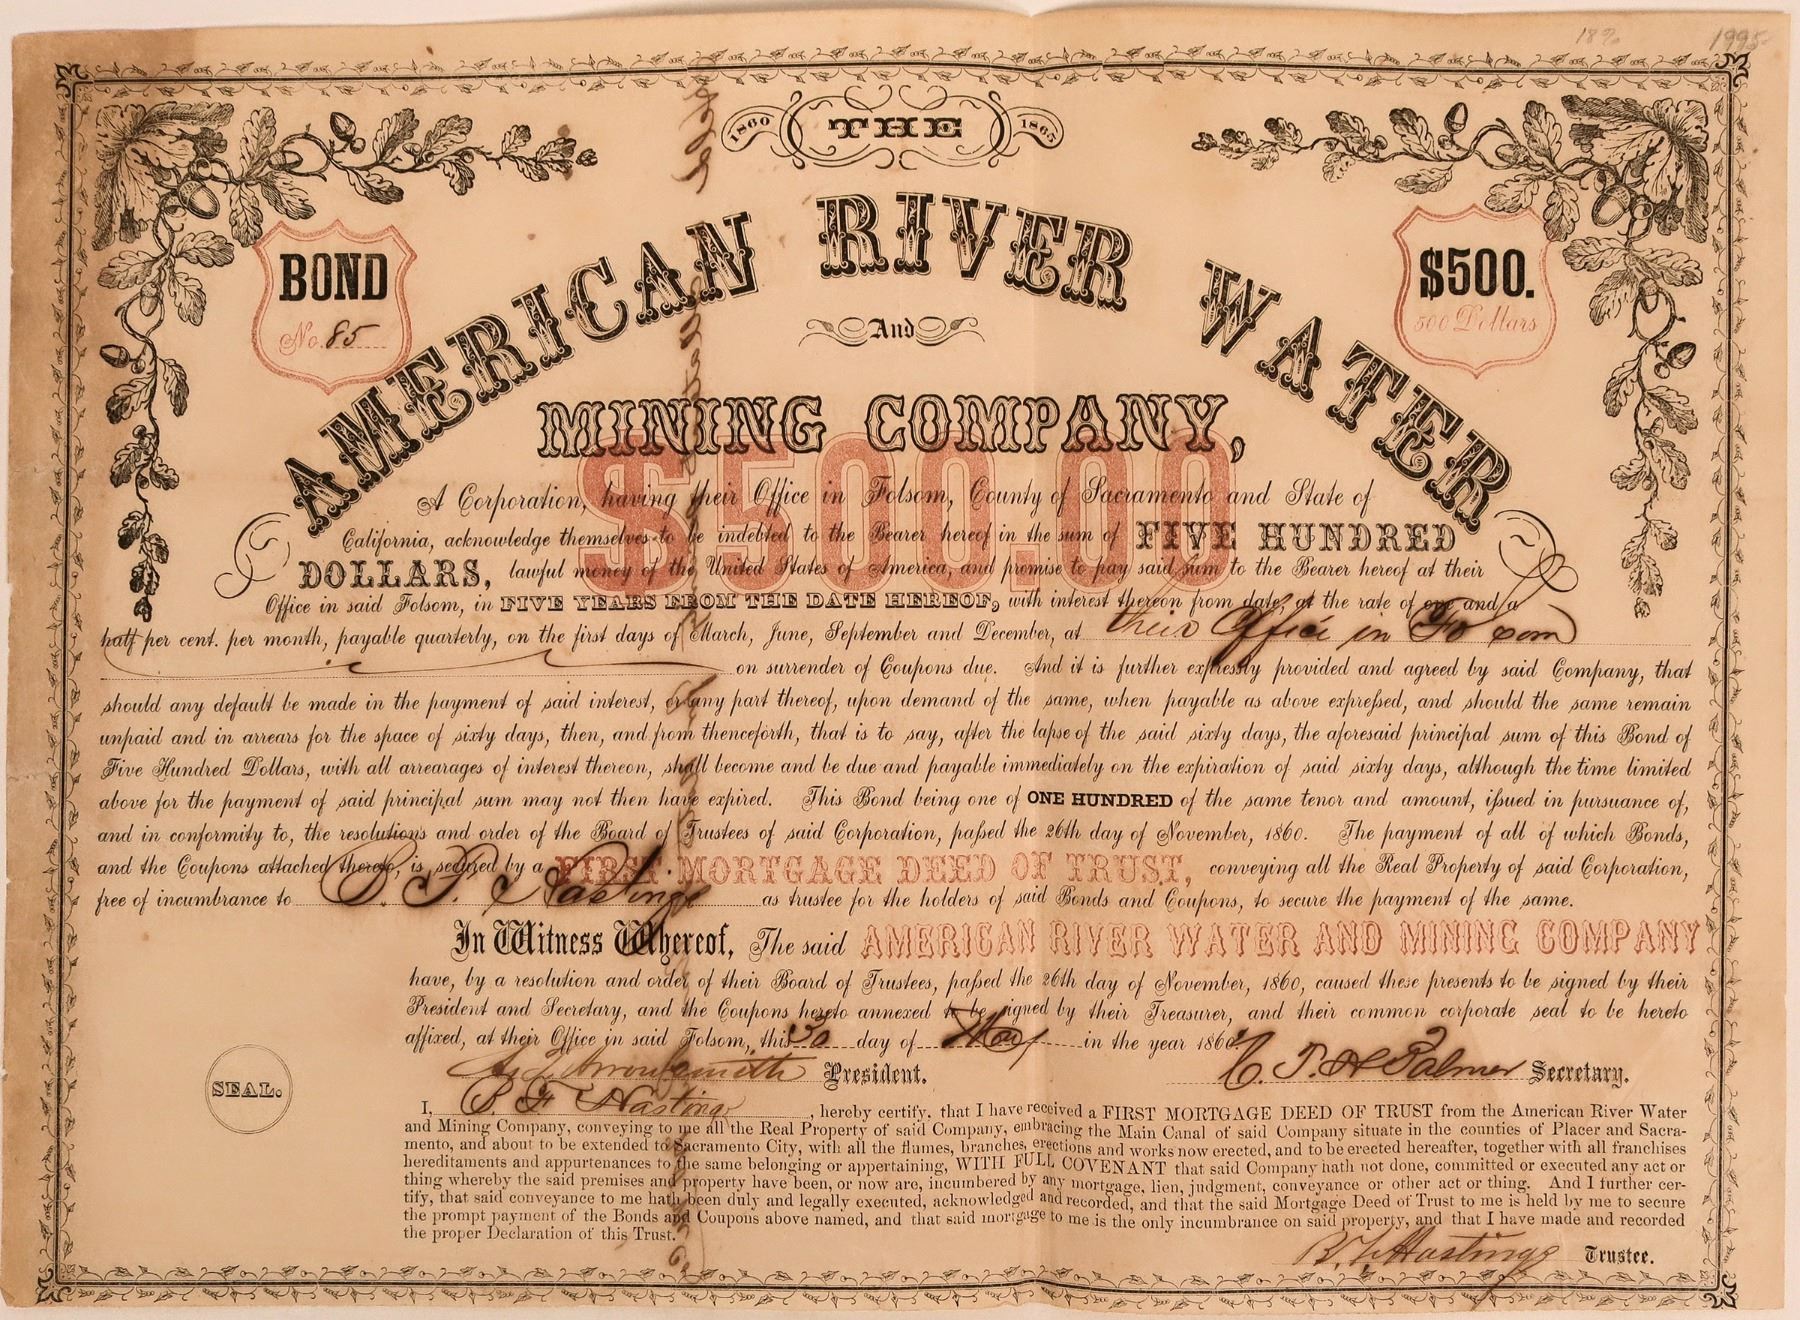 1995
THE
1860
1865
AMERICAN RIVER WATER
And
MINING COMPANY,
BOND
No. 85
$500.
500 Dollars
$500.00
A Corporation, having their Office in Folsom, County of Sacramento and State of
California, acknowledge themselves to be indebted to the Bearer hereof in the sum of FIVE HUNDRED
DOLLARS, lawful money of the United States of America, and promise to pay said sum to the Bearer hereof at their
Office in said Folsom, in FIVE YEARS FROM THE DATE HEREOF, with interest thereon from date, at the rate of one and a
half per cent. per month, payable quarterly, on the first days of March, June, September and December, at their Office in Folsom
on surrender of Coupons due. And it is further expressly provided and agreed by said Company, that
should any default be made in the payment of said interest, or any part thereof, upon demand of the same, when payable as above expressed, and should the same remain
unpaid and in arrears for the space of sixty days, then, and from thenceforth, that is to say, after the lapse of the said sixty days, the aforesaid principal sum of this Bond of
Five Hundred Dollars, with all arrearages of interest thereon, shall become and be due and payable immediately on the expiration of said sixty days, although the time limited
above for the payment of said principal sum may not then have expired. This Bond being one of ONE HUNDRED of the same tenor and amount, issued in pursuance of,
and in conformity to, the resolutions and order of the Board of Trustees of said Corporation, passed the 26th day of November, 1860. The payment of all of which Bonds,
and the Coupons attached thereto, is secured by a FIRST MORTGAGE DEED OF TRUST, conveying all the Real Property of said Corporation,
free of incumbrance to B. F. Hastings as trustee for the holders of said Bonds and Coupons, to secure the payment of the same.
In Witness Whereof, The said AMERICAN RIVER WATER AND MINING COMPANY
have, by a resolution and order of their Board of Trustees, passed the 26th day of November, 1860, caused these presents to be signed by their
President and Secretary, and the Coupons hereto annexed to be signed by their Treasurer, and their common corporate seal to be hereto
affixed, at their Office in said Folsom, this 30 day of Nov in the year 1860.
Arrowsmith President.
C. T. H. Palmer Secretary.
SEAL.
I, B. F. Hastings, hereby certify, that I have received a FIRST MORTGAGE DEED OF TRUST from the American River Water
and Mining Company, conveying to me all the Real Property of said Company, embracing the Main Canal of said Company situate in the counties of Placer and Sacra-
mento, and about to be extended to Sacramento City, with all the flumes, branches, erections and works now erected, and to be erected hereafter, together with all franchises
hereditaments and appurtenances to the same belonging or appertaining, WITH FULL COVENANT that said Company hath not done, committed or executed any act or
thing whereby the said premises and property have been, or now are, incumbered by any mortgage, lien, judgment, conveyance or other act or thing. And I further cer-
tify, that said conveyance to me hath been duly and legally executed, acknowledged and recorded, and that the said Mortgage Deed of Trust to me is held by me to secure
the prompt payment of the Bonds and Coupons above named, and that said mortgage to me is the only incumbrance on said property, and that I have made and recorded
the proper Declaration of this Trust.
B. F. Hastings Trustee.